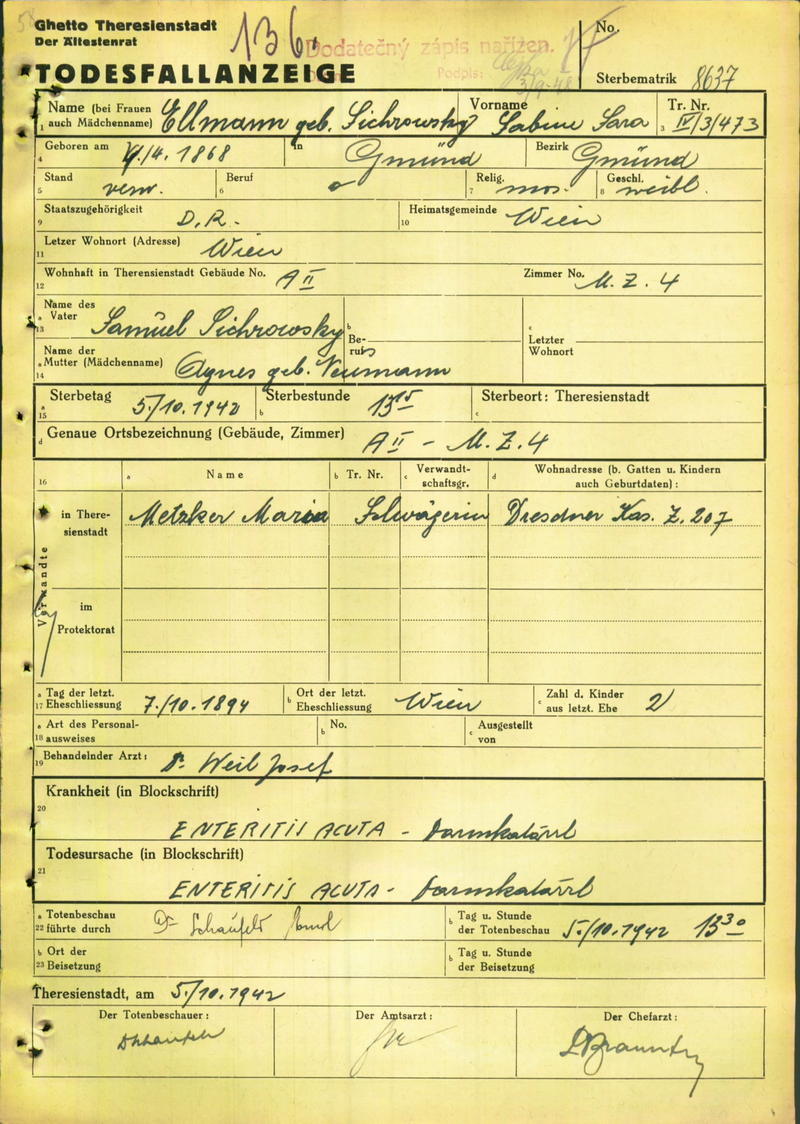 Ghetto Theresienstadt
Der Ältestenrat
136.
Dodatečný zápis nařízen.
Podpis:
3/9-48
No.
TODESFALLANZEIGE
Sterbematrik 8637
Name (bei Frauen auch Mädchenname) Ellmann geb. Sichrowsky Vorname Sabine Sara Tr. Nr. IV/3/473
1 3
Geboren am /4. 1868 in Gmünd Bezirk Gmünd
4
Stand verw. Beruf Relig. mos. Geschl. weibl.
5 6 7 8
Staatszugehörigkeit D.R. Heimatsgemeinde Wien
9 10
Letzer Wohnort (Adresse) Wien
11
Wohnhaft in Theresienstadt Gebäude No. A II Zimmer No. M.Z. 4
12
Name des Vater Samuel Sichrowsky
a 13
b Be-rufs
c Letzter Wohnort
Name der Mutter (Mädchenname) Agnes geb. Neumann
a 14
Sterbetag 5./10. 1942 Sterbestunde 13 15 Sterbeort: Theresienstadt
a 15 b c
d Genaue Ortsbezeichnung (Gebäude, Zimmer) A II - M.Z. 4
16 a Name b Tr. Nr. c Verwandt-schaftsgr. d Wohnadresse (b. Gatten u. Kindern auch Geburtdaten):
Verwandte
in There-sienstadt Metzker Maria Schwägerin Dresdner Kas. Z. 207
im Protektorat
a 17 Tag der letzt. Eheschliessung 7./10. 1894 b Ort der letzt. Eheschliessung Wien c Zahl d. Kinder aus letzt. Ehe 2
a 18 Art des Personal-ausweises b No. c Ausgestellt von
19 Behandelnder Arzt: Dr. Weil Josef
Krankheit (in Blockschrift)
20
ENTERITIS ACUTA - Darmkatarrh
Todesursache (in Blockschrift)
21
ENTERITIS ACUTA - Darmkatarrh
a 22 Totenbeschau führte durch Dr b Tag u. Stunde der Totenbeschau 5./10. 1942 13 30
b 23 Ort der Beisetzung b Tag u. Stunde der Beisetzung
Theresienstadt, am 5./10. 1942
Der Totenbeschauer: Der Amtsarzt: Der Chefarzt: